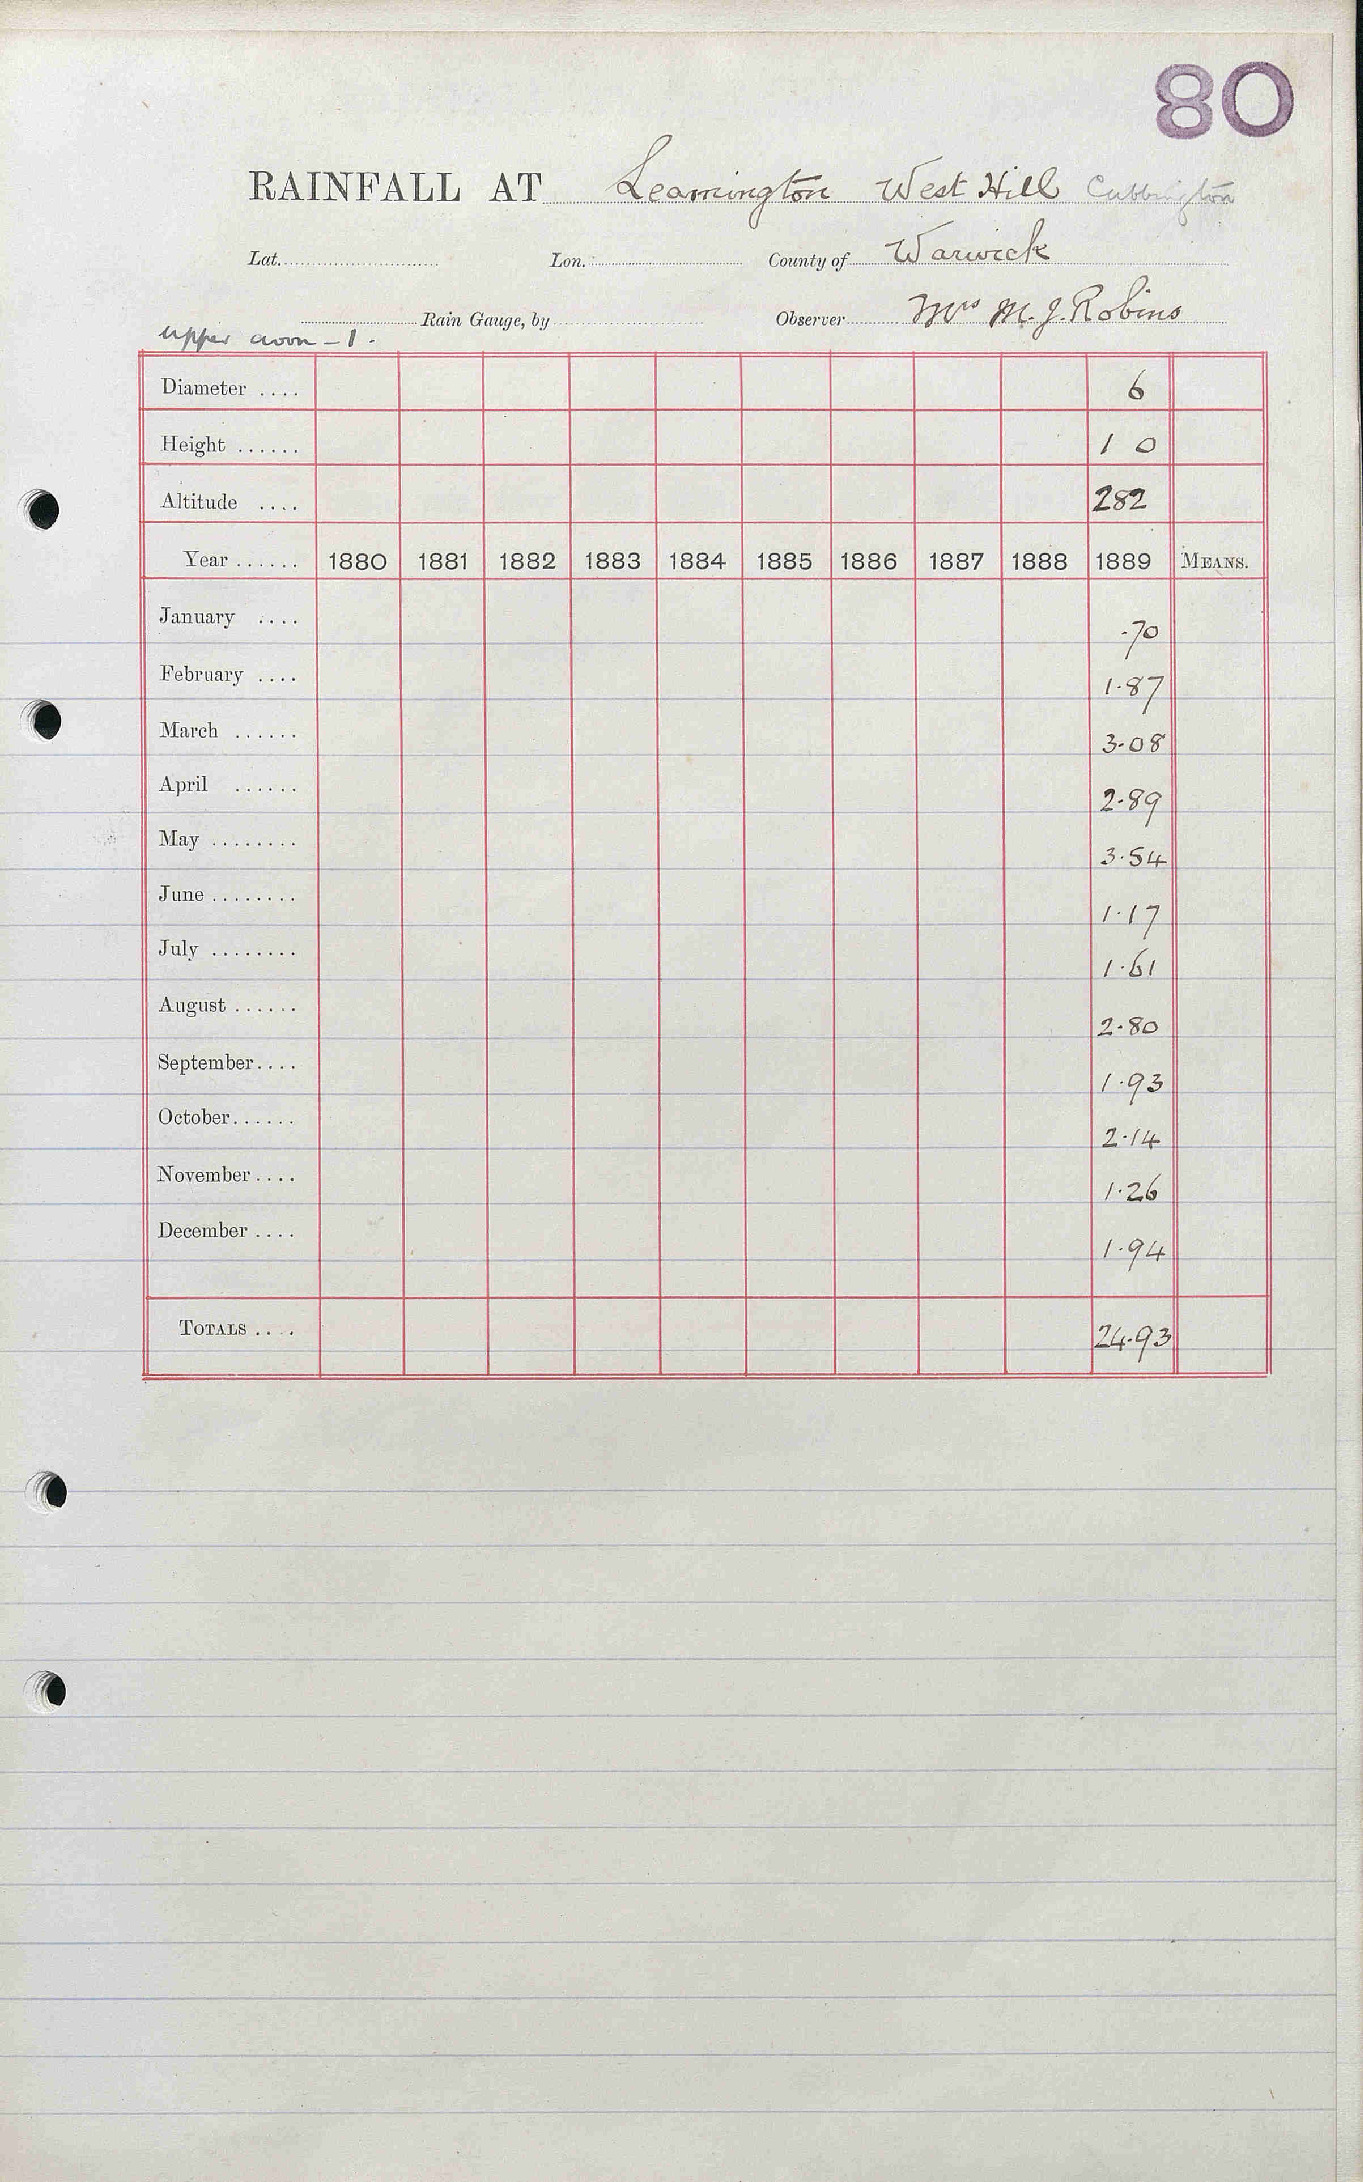 80
RAINFALL AT Leamington West Hill Cubbington
Lat. Lon. County of Warwick
Rain Gauge, by Observer Mrs M. J. Robins
upper avon - 1.
Diameter .... 6
Height ...... 1 0
Altitude .... 282
Year ...... 1880 1881 1882 1883 1884 1885 1886 1887 1888 1889 MEANS.
January .... .70
February .... 1.87
March ...... 3.08
April ...... 2.89
May ........ 3.54
June ........ 1.17
July ........ 1.61
August ...... 2.80
September.... 1.93
October...... 2.14
November.... 1.26
December .... 1.94
TOTALS .... 24.93